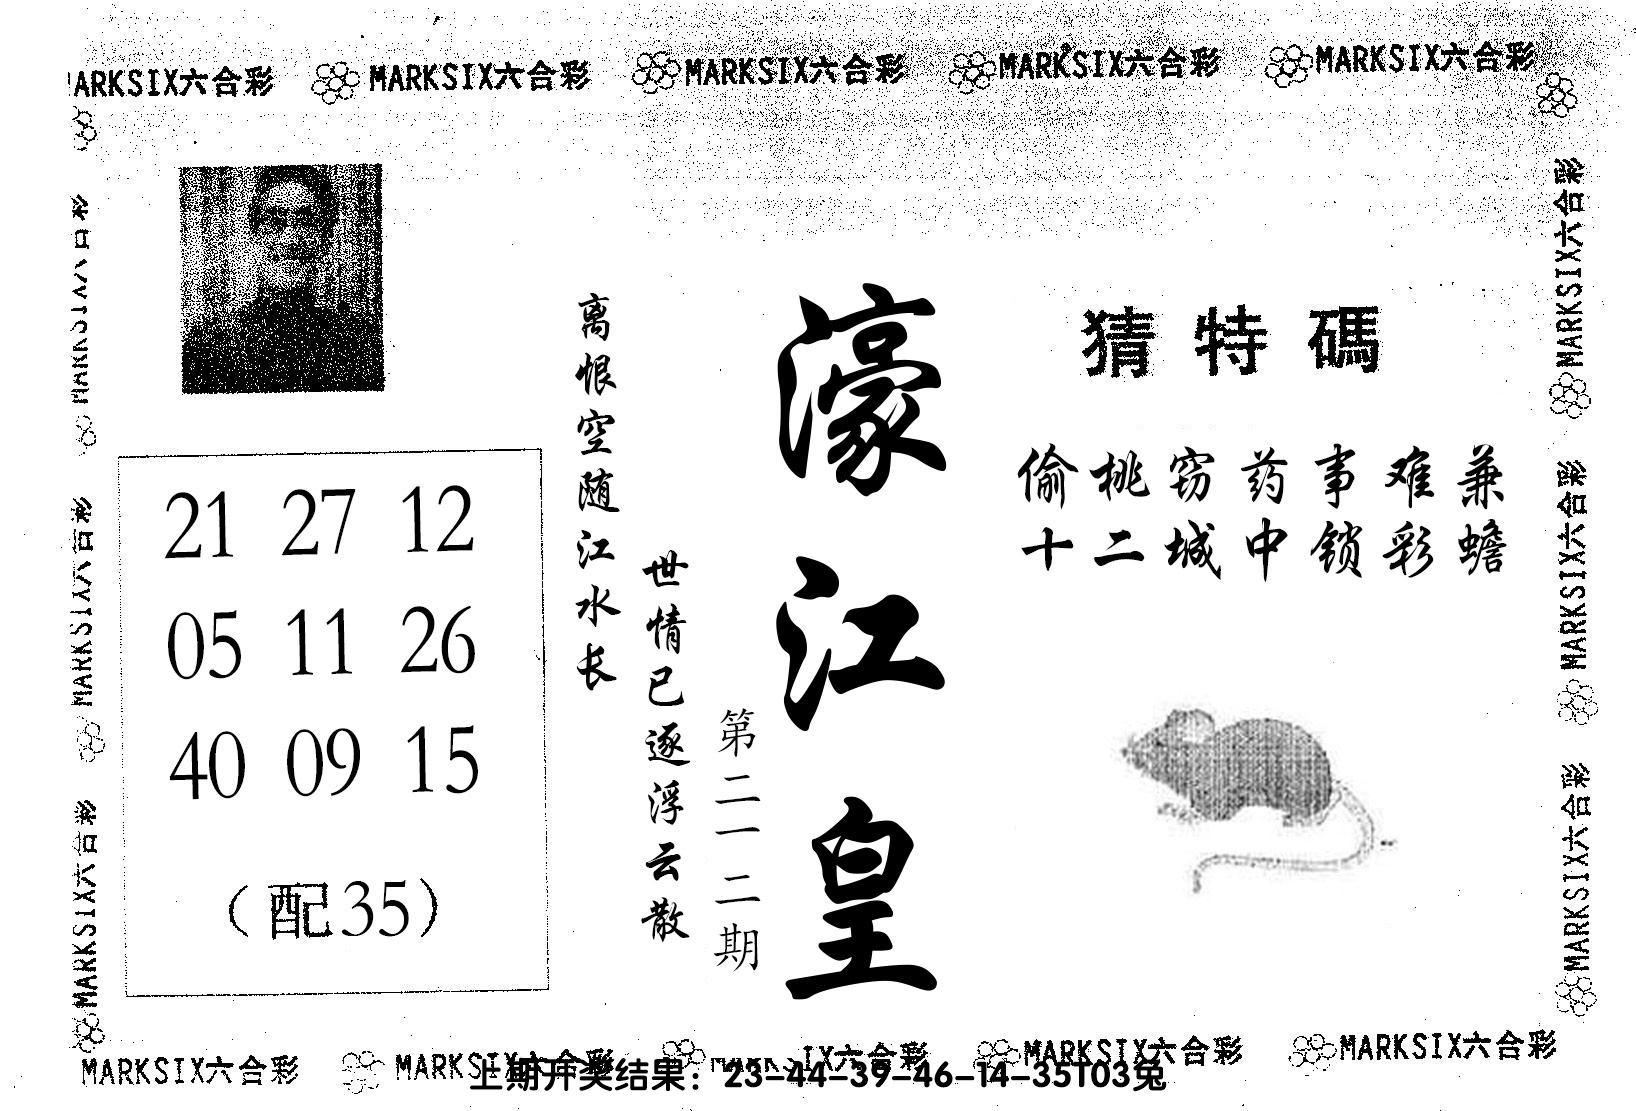 MARKSIX六合彩 MARKSIX六合彩 MARKSIX六合彩 MARKSIX六合彩
猜特碼
偷桃窃药事难兼
十二城中锁彩蟾
濠江皇
第二一二期
世情已逐浮云散
离恨空随江水长
21 27 12
05 11 26
40 09 15
（配35）
MARKSIX六合彩
MARKSIX六合彩
MARKSIX六合彩
MARKSIX六合彩
MARKSIX六合彩
MARKSIX六合彩 MARKSIX六合彩 MARKSIX六合彩 MARKSIX六合彩
上期开奖结果：23-44-39-46-14-35T03兔